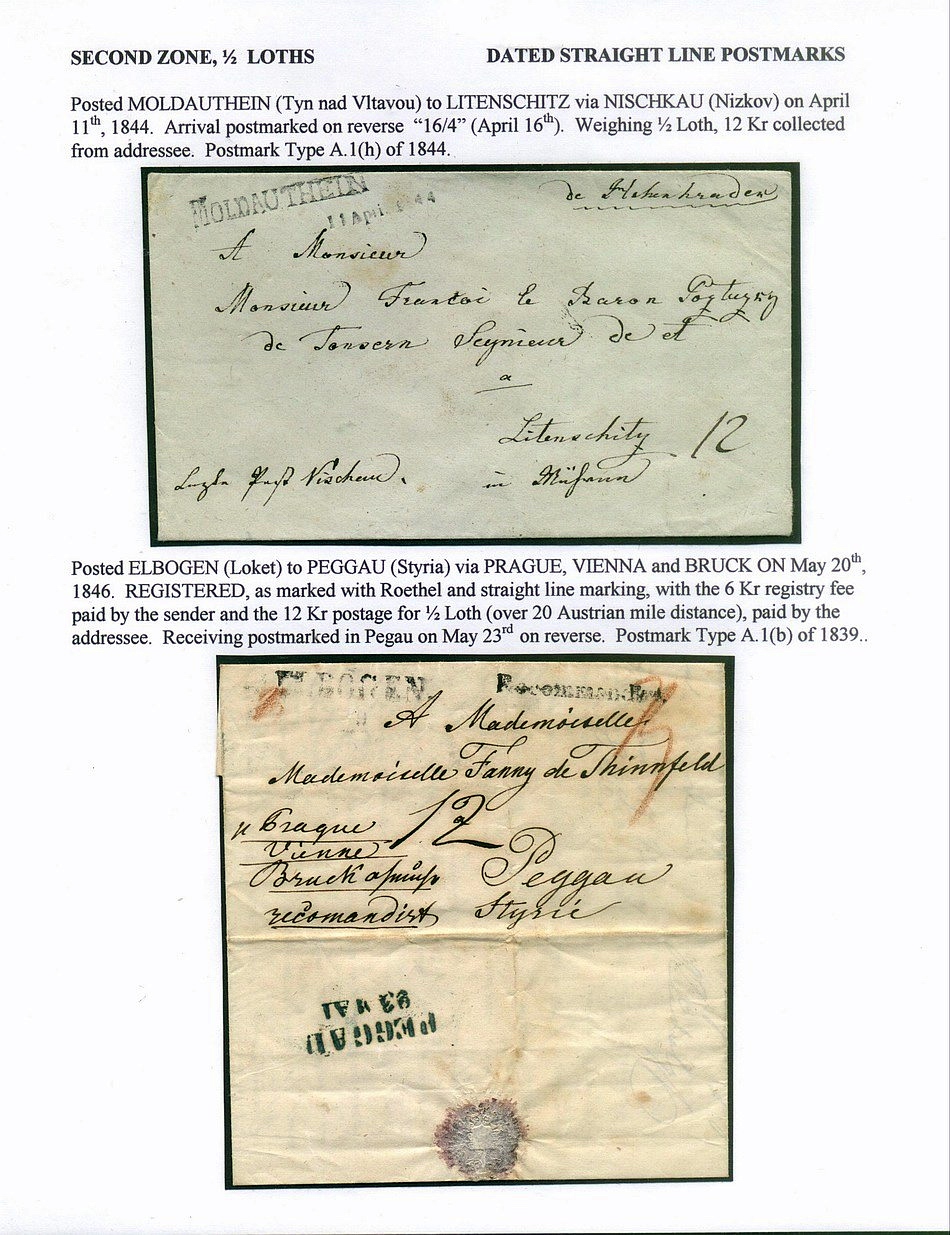 SECOND ZONE, ½ LOTHS DATED STRAIGHT LINE POSTMARKS
Posted MOLDAUTHEIN (Tyn nad Vltavou) to LITENSCHITZ via NISCHKAU (Nizkov) on April
11th, 1844. Arrival postmarked on reverse “16/4” (April 16th). Weighing ½ Loth, 12 Kr collected
from addressee. Postmark Type A.1(h) of 1844.
MOLDAUTHEIN
11 April 1844
de
A Monsieur
Monsieur le Baron
de Seynieur de et
a
Litenschitz 12
Post in
Posted ELBOGEN (Loket) to PEGGAU (Styria) via PRAGUE, VIENNA and BRUCK ON May 20th,
1846. REGISTERED, as marked with Roethel and straight line marking, with the 6 Kr registry fee
paid by the sender and the 12 Kr postage for ½ Loth (over 20 Austrian mile distance), paid by the
addressee. Receiving postmarked in Pegau on May 23rd on reverse. Postmark Type A.1(b) of 1839..
ELBOGEN. Recommandirt
A Mademoiselle
Mademoiselle Fanny de Thinnfeld
Prague 12
Vienne
Bruck Peggau
recomandirt Styrie
PEGGAU
23 MAI